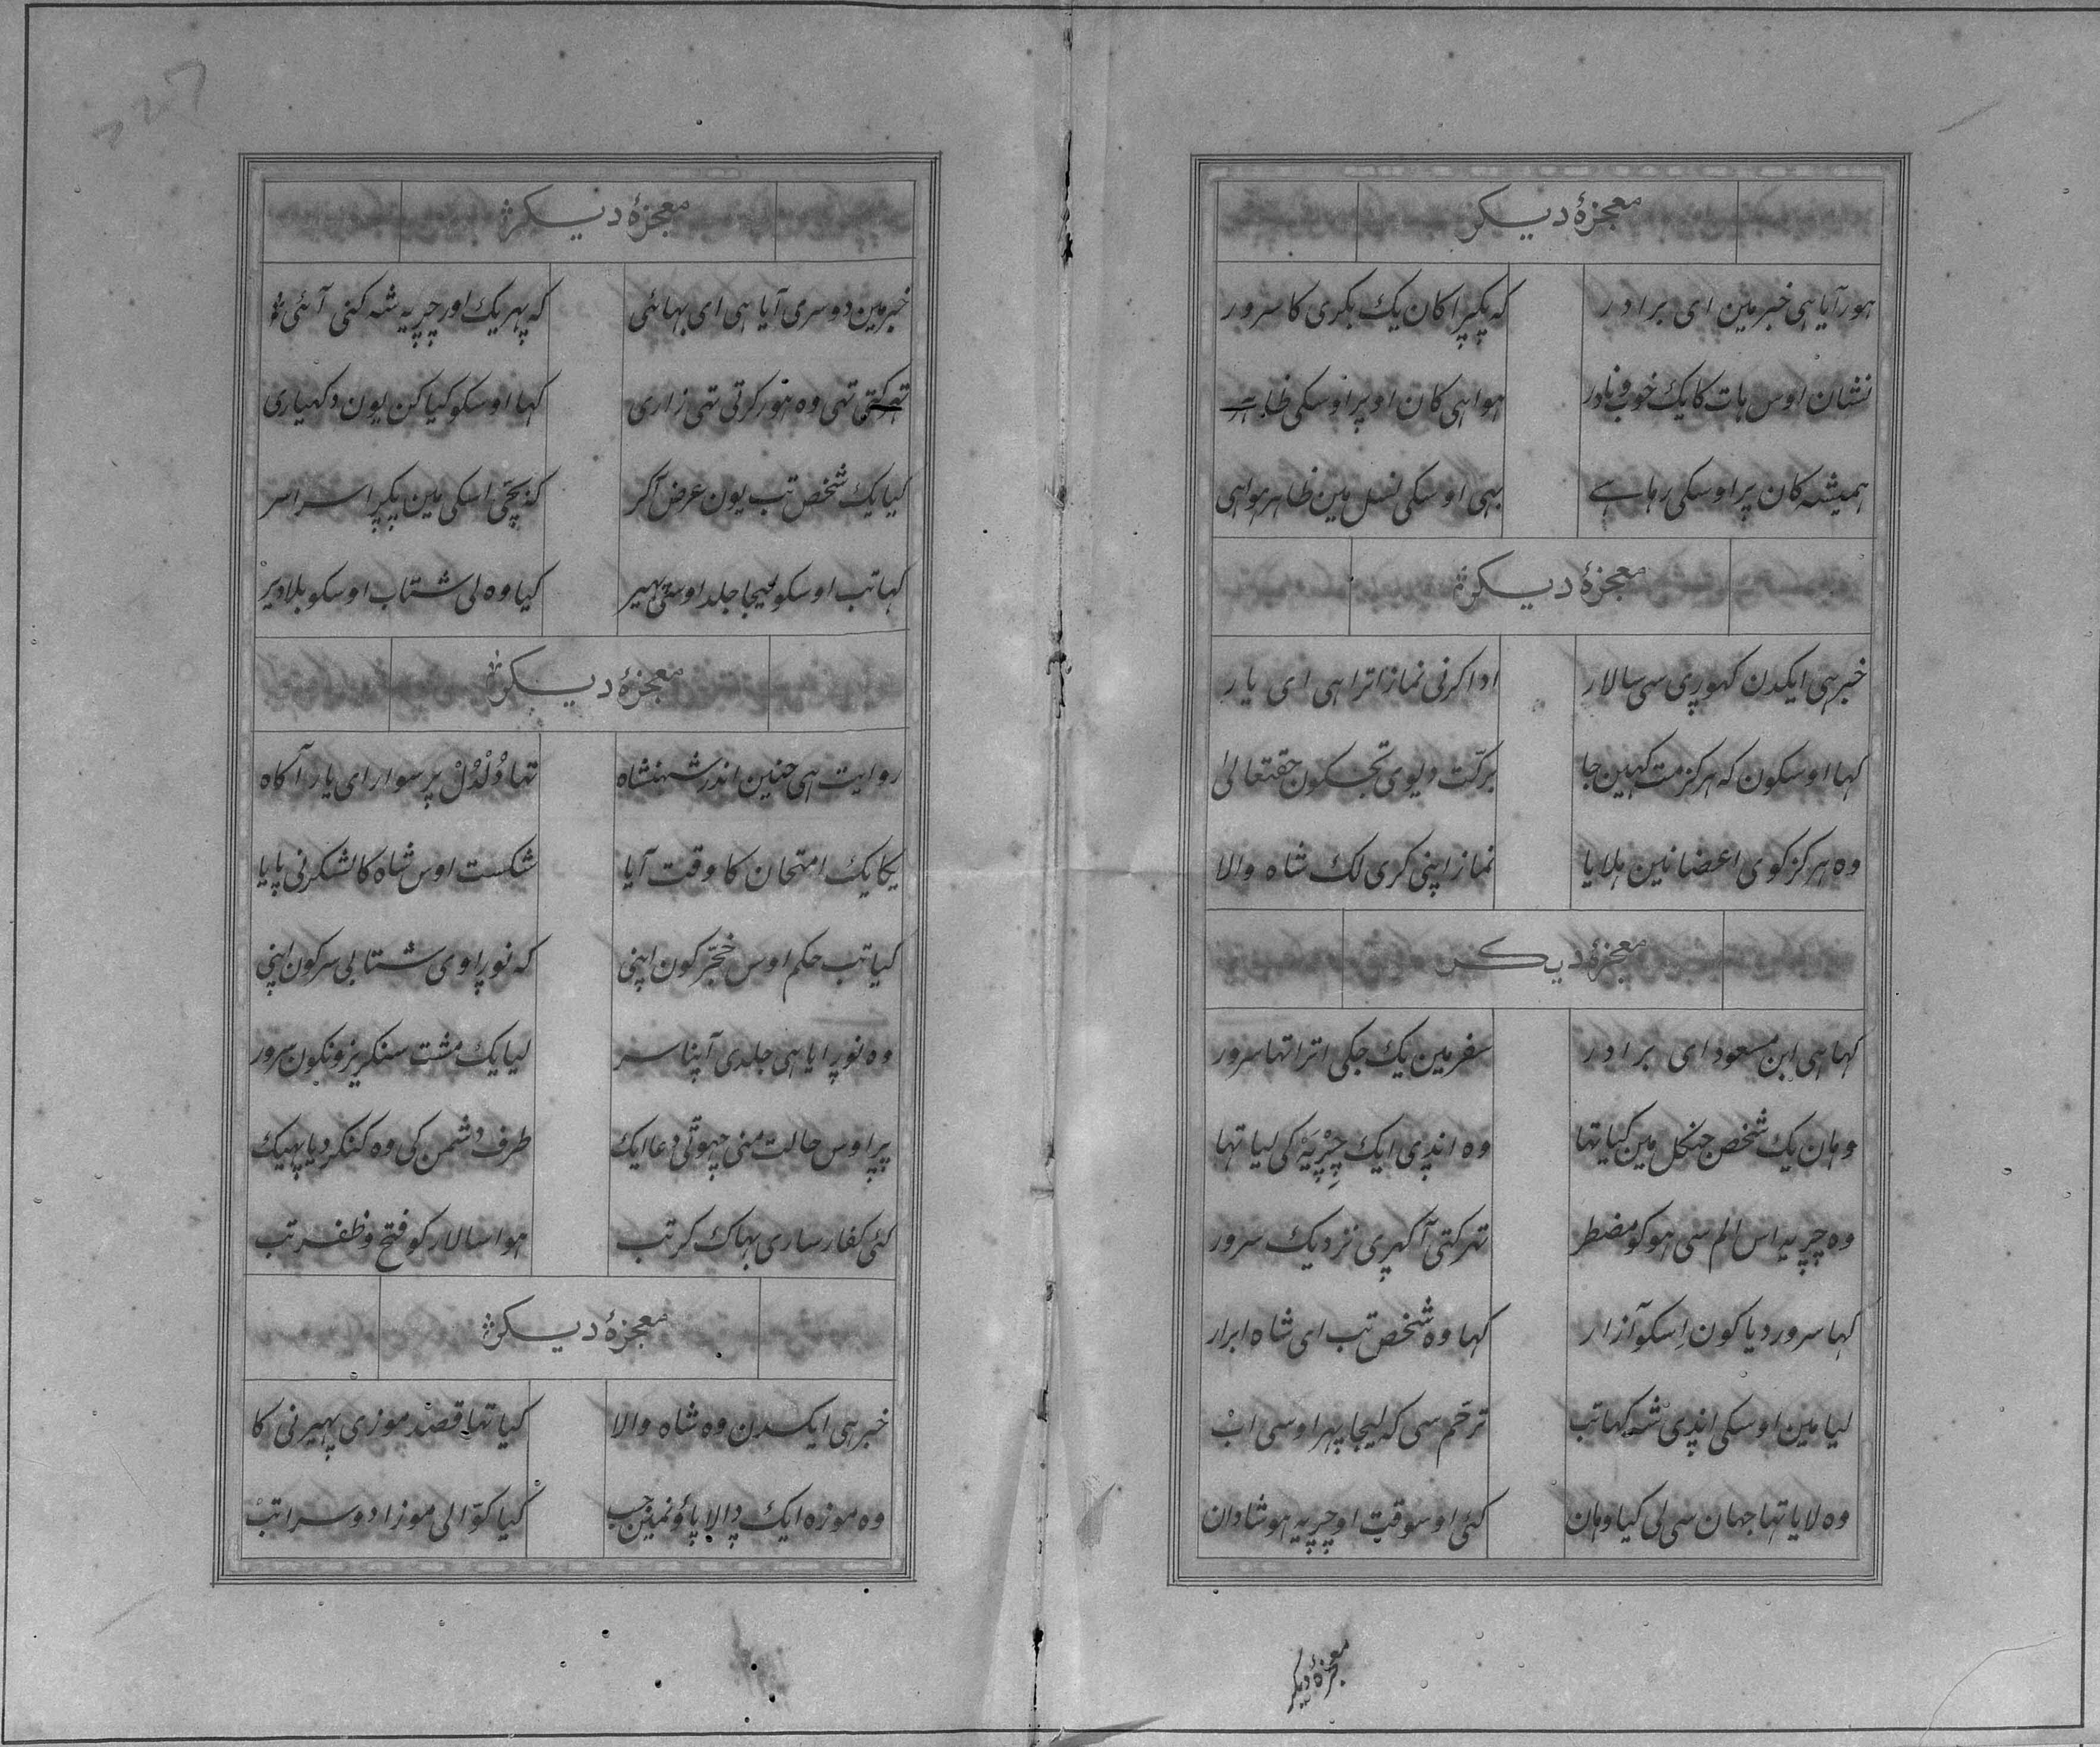 معجزهٔ دیـکر
هور آیا هی خبر مین ای برادر که پکیرا کان یك بکری کا سرور
نشان اوس بات کا یك خوب و نادر هوا هی کان اوپر اوسکی ظاهر
همیشه کان پر اوسکی رها هے بهی اوسکی نسل مین ظاهر هوا هی
معجزهٔ دیـکر
خبر هی ایکدن کهوڑی سی سالار ادا کرنی نماز اترا هی ای یار
کها اوسکون که هرکز مت کهین جا برکّت دیوی تجکون حقتعالیٰ
وه هرکز کوی اعضا نین هلایا نماز اپنی کری لك شاه والا
معجزهٔ دیـکر
کها هی ابن مسعود ای برادر سفر مین یك جکی اترا تها سرور
وهان یك شخص جنکل مین کیا تها وه انڈی ایك چِڑیَهْ کی لیا تها
وه چڑیه اس الم سی هو کو مضطر تهرکتی آ کهڑی نزدیك سرور
کها سرور دیا کون اِسکو آزار کها وه شخص تب ای شاه ابرار
لیا مین اوسکی انڈی شه کها تب ترحّم سی که لیجا پهر اوسی ابْ
وه لایا تها جهان سی لی کیا وهان کئی اوسوقت او چڑیه هو شادان
معجزهٔ دیکر
معجزهٔ دیـکر
خبر مین دوسری آیا هی ای بهائی که پهر یك اور چڑیه شه کنی آئی
تهرکتی تهی وه هور کرتی تهی زاری کها اوسکو کیا کن یون دکهیاری
کیا یك شخص تب یون عرض آکر که بچّی اسکی مین پکڑا سراسر
کها تب اوسکو لیجا جلد اوسی پهیر کیا وه لی شتاب اوسکو بلا دیر
معجزهٔ دیـکر
روایت هی حنین اندر شهنشاه تها دُلْدُلْ پر سوار ای یار آکاه
یکایك امتحان کا وقت آیا شکست اوس شاه کا لشکر نی پایا
کیا تب حکم اوس خچّر کون اپنی که نوڑاوی شتابی سر کون اپنی
وه نوڑایا هی جلدی آپنا سر لیا یك مشت سنکریزونکون سرور
پڑ اوس حالت منی چهوٹی دعا ایك طرف دشمن کی وه کنکر دیا پهیك
کئی کفار ساری بهاك کر تب هوا سالار کو فتح و ظفر تب
معجزهٔ دیـکر
خبر هی ایکدن وه شاه والا کیا تها قصد موزی پهیرنی کا
وه موزه ایك ڈالا پاؤنمین جب کیا کوّا لی موزا دوسرا تبْ